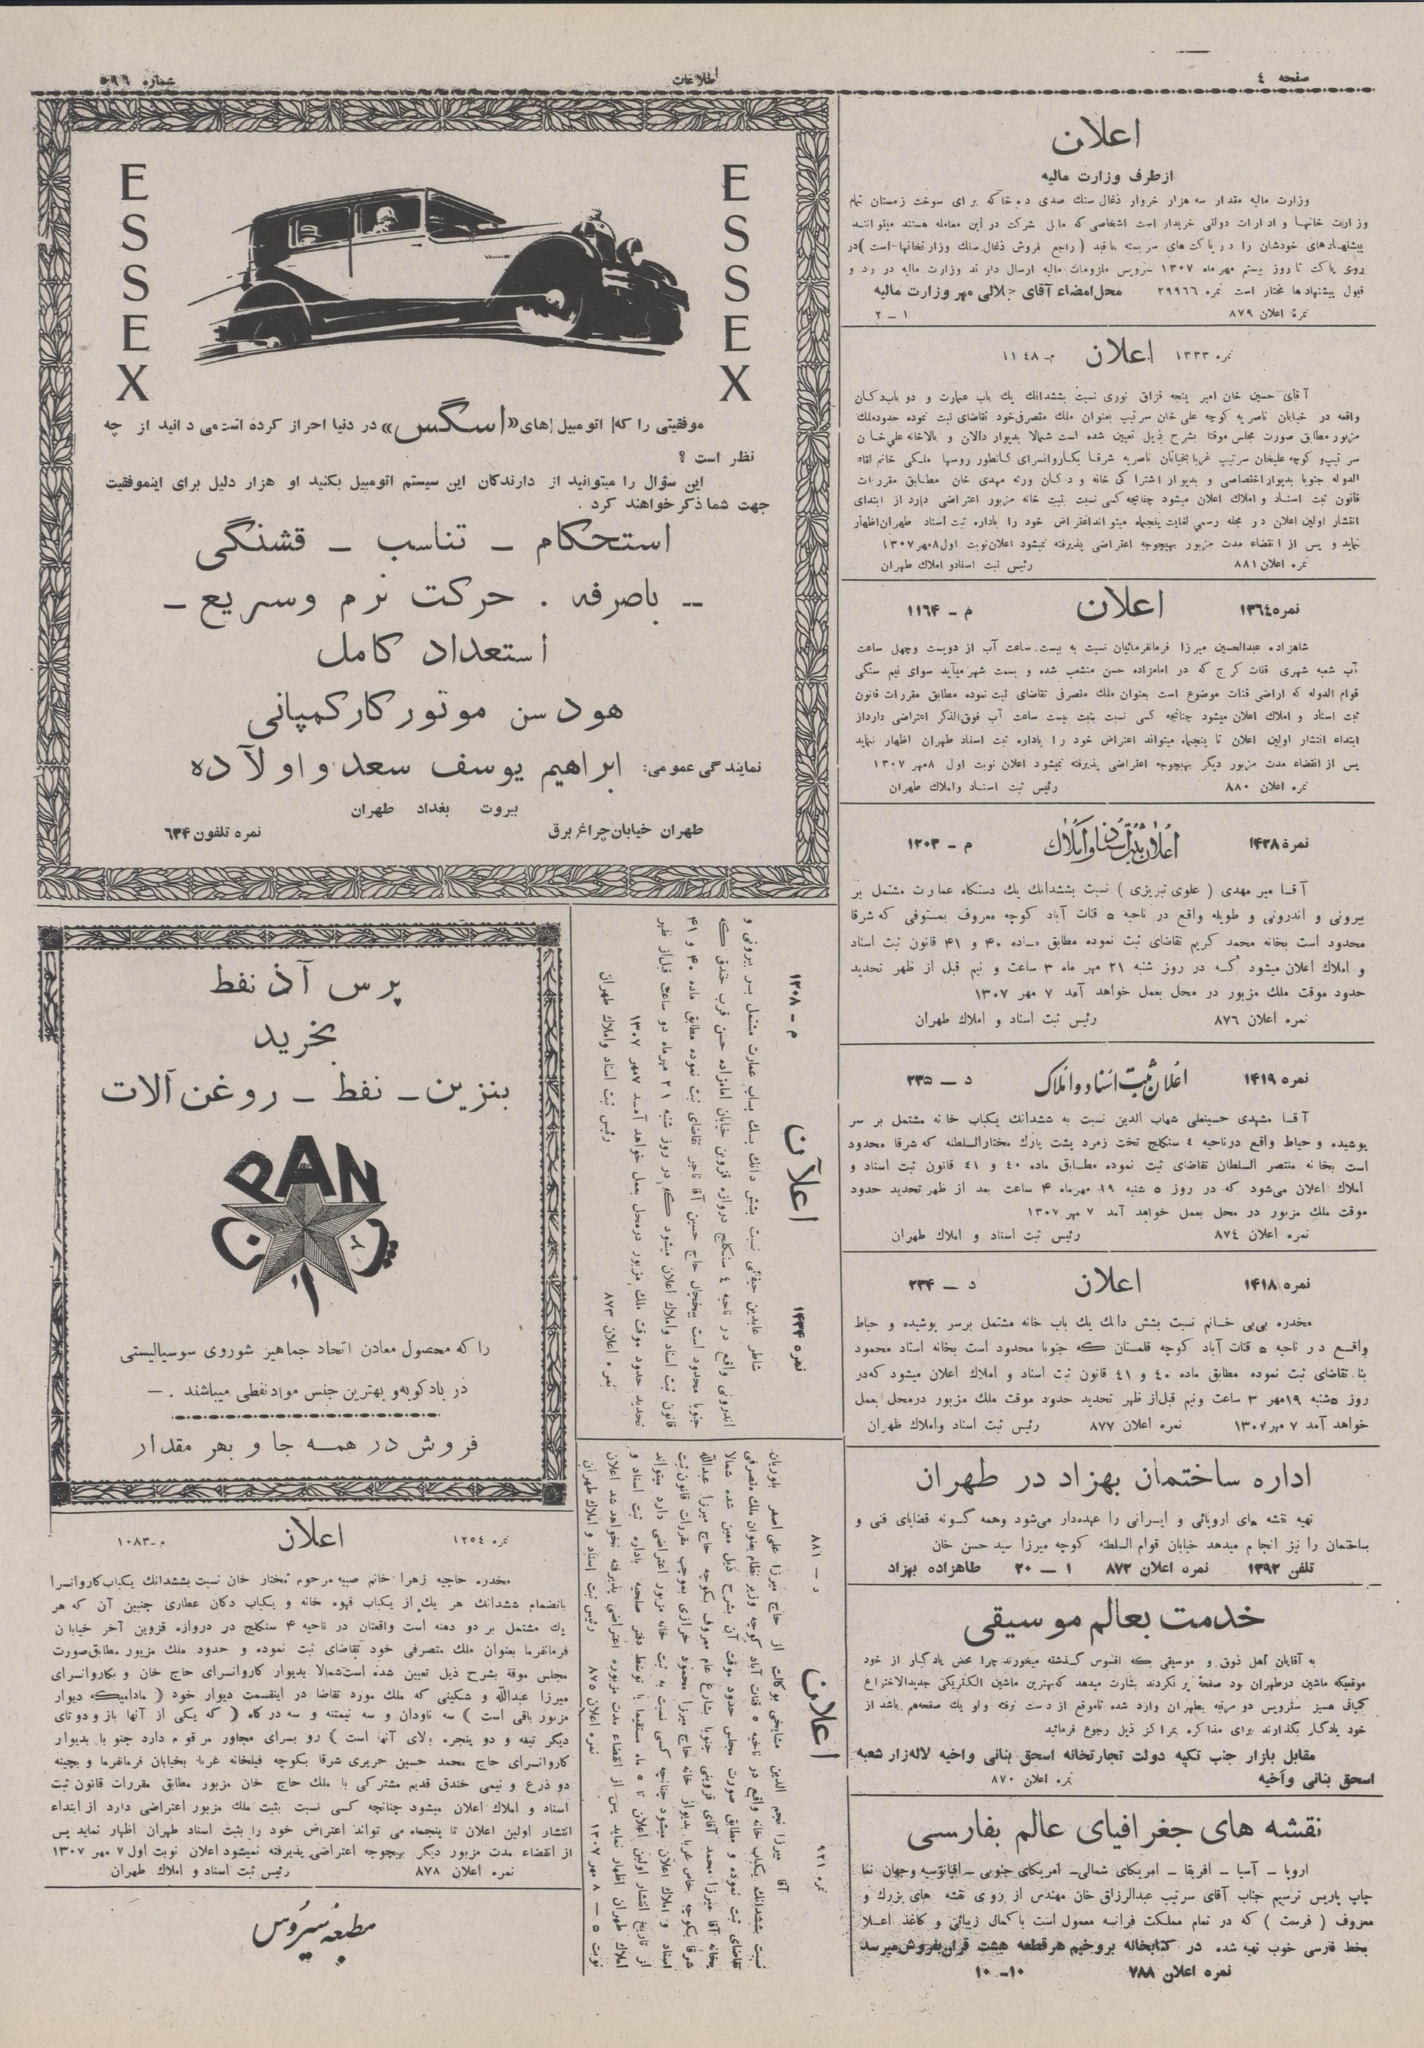 صفحه ٤
اطلاعات
شماره ٥٩٦
اعلان
از طرف وزارت مالیه
وزارت مالیه مقدار سه هزار خروار ذغال سنك صدی ده خاکه برای سوخت زمستان تمام
وزارت خانها و ادارات دولتی خریدار است اشخاصی که مایل شرکت در این معامله هستند میتوانند
پیشنهادهای خودشان را در پاکت های سر بسته باقید ( راجع فروش ذغال سنك وزارتخانها است ) در
روی پاکت تا روز بیستم مهر ماه ۱۳۰۷ بسرویس ملزومات مالیه ارسال دارند وزارت مالیه در رد و
قبول پیشنهادها مختار است نمره ۲۹۹۶۶ محل امضاء آقای جلالی مهر وزارت مالیه
نمرهٔ اعلان ۸۷۹ ۱ - ۲
نمره ۱۳۳۳ اعلان م- ۱۱٤۸
آقای حسین خان امیر پنجه قزاق نوری نسبت بششدانك یك باب عمارت و دو باب دکان
واقعه در خیابان ناصریه کوچه علی خان سرتیپ بعنوان ملك متصرفی خود تقاضای ثبت نموده حدود ملك
مزبور مطابق صورت مجلس موقتا بشرح ذیل تعیین شده است شمالا بدیوار دالان و بالاخانه علی خان
سرتیپ و کوچه علیخان سرتیپ غربا بخیابان ناصریه شرقا بکاروانسرای کانطور روسها ملکی خانم لقاء
الدوله جنوبا بدیوار اختصاصی و بدیوار اشتراکی خانه و دکان ورثه مهدی خان مطابق مقررات
قانون ثبت اسناد و املاك اعلان میشود چنانچه کسی نسبت بثبت خانه مزبور اعتراضی دارد از ابتدای
انتشار اولین اعلان در مجله رسمی لغایت پنجماه میتواند اعتراض خود را باداره ثبت اسناد طهران اظهار
نماید و پس از انقضاء مدت مزبور بهیچوجه اعتراضی پذیرفته نمیشود اعلان نوبت اول ۸ مهر ۱۳۰۷
نمره اعلان ۸۸۱ رئیس ثبت اسناد و املاك طهران
نمره ۱۳٦٤ اعلان م - ۱۱۶۴
شاهزاده عبدالحسین میرزا فرمانفرمائیان نسبت به بیست ساعت آب از دویست وچهل ساعت
آب شعبه شهری قنات کرج که در امامزاده حسن منشعب شده و بسمت شهر میآید سوای نیم سنگی
قوام الدوله که اراضی قنات موضوع است بعنوان ملك متصرفی تقاضای ثبت نموده مطابق مقررات قانون
ثبت اسناد و املاك اعلان میشود چنانچه کسی نسبت بثبت بیست ساعت آب فوق الذکر اعتراضی دارد از
ابتداء انتشار اولین اعلان تا پنجماه میتواند اعتراض خود را باداره ثبت اسناد طهران اظهار نماید
پس از انقضاء مدت مزبور دیگر بهیچوجه اعتراضی پذیرفته نمیشود اعلان نوبت اول ۸ مهر ۱۳۰۷
نمره اعلان ۸۸۰ رئیس ثبت اسناد واملاك طهران
نمره ۱۴۲۸ اعلان ثبت اسناد و املاك م - ۱۲۰۳
آقا میر مهدی ( علوی تبریزی ) نسبت بششدانك یك دستگاه عمارت مشتمل بر
بیرونی و اندرونی و طویله واقع در ناحیه ٥ قنات آباد کوچه معروف بمستوفی که شرقا
محدود است بخانه محمد کریم تقاضای ثبت نموده مطابق ماده ۴۰ و ۴۱ قانون ثبت اسناد
و املاك اعلان میشود که در روز شنبه ۲۱ مهر ماه ۳ ساعت و نیم قبل از ظهر تحدید
حدود موقت ملك مزبور در محل بعمل خواهد آمد ۷ مهر ۱۳۰۷
نمره اعلان ۸۷۶ رئیس ثبت اسناد و املاك طهران
نمره ۱۴۱۹ اعلان ثبت اسناد و املاک د - ۲۳۵
آقا مشهدی حسینعلی شهاب الدین نسبت به ششدانك یکباب خانه مشتمل بر سر
پوشیده و حیاط واقع در ناحیه ٤ سنگلج تخت زمرد پشت پارك مختارالسلطنه که شرقا محدود
است بخانه منتصر السلطان تقاضای ثبت نموده مطابق ماده ٤۰ و ٤۱ قانون ثبت اسناد و
املاك اعلان می‌شود که در روز ٥ شنبه ۱۹ مهرماه ۴ ساعت بعد از ظهر تحدید حدود
موقت ملك مزبور در محل بعمل خواهد آمد ۷ مهر ۱۳۰۷
نمره اعلان ۸۷٤ رئیس ثبت اسناد و املاك طهران
نمره ۱۴۱۸ اعلان د - ۲۳۴
مخدره بی‌بی خانم نسبت بشش دانك یك باب خانه مشتمل برسر پوشیده و حیاط
واقع در ناحیه ٥ قنات آباد کوچه قلمستان که جنوبا محدود است بخانه استاد محمود
بنا تقاضای ثبت نموده مطابق ماده ۴۰ و ٤۱ قانون ثبت اسناد و املاك اعلان میشود که در
روز ٥شنبه ۱۹مهر ۳ ساعت ونیم قبل از ظهر تحدید حدود موقت ملك مزبور درمحل بعمل
خواهد آمد ۷ مهر ۱۳۰۷ نمره اعلان ۸۷۷ رئیس ثبت اسناد واملاك طهران
اداره ساختمان بهزاد در طهران
تهیه نقشه های اروپائی و ایرانی را عهده‌دار می‌شود وهمه گونه قضایای فنی و
ساختمان را نیز انجام میدهد خیابان قوام السلطنه کوچه میرزا سید حسن خان
تلفن ۱۳۹۲ نمره اعلان ۸۷۲ ۱ - ۲۰ طاهزاده بهزاد
خدمت بعالم موسیقی
به آقایان اهل ذوق و موسیقی که افسوس گذشته میخورند چرا محض یادگار از خود
موقعیکه ماشین در طهران بود صفحه پر نکردند بشارت میدهد که بهترین ماشین الکتریکی جدیدالاختراع
کمپانی هسیز سفرویس دو مرتبه بطهران وارد شده تاموقع از دست نرفته ولو یك صفحه‌هم باشد از
خود یادگار بگذارند برای مذاکره بمراکز ذیل رجوع فرمائید
مقابل بازار جنب تکیه دولت تجارتخانه اسحق بنانی واخیه لاله‌زار شعبه
اسحق بنانی واخیه نمره اعلان ۸۷۰
نقشه های جغرافیای عالم بفارسی
اروپا - آسیا - افریقا - امریکای شمالی- امریکای جنوبی - اقیانوسیه وجهان نما
چاپ پاریس ترسیم جناب آقای سرتیپ عبدالرزاق خان مهندس از روی نقشه های بزرك و
معروف ( فرست ) که در تمام مملکت فرانسه معمول است باکمال زیبائی و کاغذ اعلا
بخط فارسی خوب تهیه شده در کتابخانه بروخیم هر قطعه هشت قران بفروش میرسد
نمره اعلان ۷۸۸ ۱۰- ۱۰
ESSEX
ESSEX
موفقیتی را که اتومبیل های «اسگس» در دنیا احراز کرده است می دانید از چه
نظر است ؟
این سؤال را میتوانید از دارندگان این سیستم اتومبیل بکنید او هزار دلیل برای اینموفقیت
جهت شما ذکر خواهند کرد .
استحکام - تناسب - قشنگی
- باصرفه . حرکت نرم وسریع -
استعداد کامل
هودسن موتور کار کمپانی
نمایندگی عمومی: ابراهیم یوسف سعد و اولاده
بیروت بغداد طهران
طهران خیابان چراغ برق نمره تلفون ۶۳۴
م - ۱۲۰۸ اعلان نمره ۱۴۳۴
شاطر عابدین حیقی نسبت بشش دانك یك باب عمارت مشتمل بر بیرونی و
اندرونی واقع در ناحیه ٤ سنگلج دروازه قزوین خیابان امامزاده حسن قرب خندق که
جنوبا محدود است بیخچال حاج حسین آقا تاجر تقاضای ثبت نموده مطابق ماده ۴۰ و ۴۱
قانون ثبت اسناد واملاك اعلان میشود که در روز شنبه ۲۱ مهرماه دو ساعت قبل از ظهر
تحدید حدود موقت ملك مزبور درمحل بعمل خواهد آمد ۷مهر ۱۳۰۷
نمره اعلان ۸۷۳ رئیس ثبت اسناد واملاك طهران
پرس آذ نفط
بخرید
بنزین - نفط - روغن آلات
PAN
پرس آذ نفت
را که محصول معادن اتحاد جماهیر شوروی سوسیالیستی
در بادکوبه و بهترین جنس مواد نفطی میباشند . -
فروش در همه جا و بهر مقدار
د - ۸۸۱ اعلان نمره ۹۲۱
آقا میرزا نجم الدین مشایخی بوکالت از حاج میرزا علی اصغر بلوریان
نسبت بششدانك یکباب خانه واقع در ناحیه ٥ قنات آباد کوچه وزیر نظام بعنوان ملك متصرفی
تقاضای ثبت نموده و مطابق صورت مجلس حدود موقت آن بشرح ذیل معین شده شمالا
بخانه آقا میرزا محمد آقای قزوینی جنوبا بشارع عام معروف بکوچه حاج میرزا عبدالله
شرقا بکوچه خاص غربا بدیوار خانه حاج میرزا محمود خرازی بموجب مقررات قانون ثبت
اسناد و املاك اعلان میشود چنانچه کسی نسبت به ثبت خانه مزبور اعتراضی دارد میتواند
از تاریخ انتشار اولین اعلان تا ٥ ماه مستقیما یا توسط دفتر صلحیه باداره ثبت اسناد و
املاك طهران اظهار نماید پس از انقضاء مدت مزبوره اعتراضی پذیرفته نخواهد شد اعلان
نوبت ٥ - ۸ مهر ۱۳۰۷ نمره اعلان ۸۷٥ رئیس ثبت اسناد و املاك طهران
نمره ۱۲٥٤ اعلان م-۱۰۸۳
مخدره حاجیه زهرا خانم صبیه مرحوم مختار خان نسبت بششدانك یکباب کاروانسرا
بانضمام ششدانك هر یك از یکباب قهوه خانه و یکباب دکان عطاری جنبین آن که هر
یك مشتمل بر دو دهنه است واقعتان در ناحیه ۴ سنگلج در دروازه قزوین آخر خیابان
فرمانفرما بعنوان ملك متصرفی خود تقاضای ثبت نموده و حدود ملك مزبور مطابق صورت
مجلس موقة بشرح ذیل تعیین شده است شمالا بدیوار کاروانسرای حاج خان و بکاروانسرای
میرزا عبدالله و شکینی که ملك مورد تقاضا در اینقسمت دیوار خود ( مادامیکه دیوار
مزبور باقی است ) سه ناودان و سه نیمتنه و سه درگاه ( که یکی از آنها باز و دوتای
دیگر تیغه و دو پنجره بالای آنها است ) رو بسرای مجاور مرقوم دارد جنوبا بدیوار
کاروانسرای حاج محمد حسین حریری شرقا بکوچه فیلخانه غربا بخیابان فرمانفرما و بچینه
دو ذرع و نیمی خندق قدیم مشترکی با ملك حاج خان مزبور مطابق مقررات قانون ثبت
اسناد و املاك اعلان میشود چنانچه کسی نسبت بثبت ملك مزبور اعتراضی دارد از ابتداء
انتشار اولین اعلان تا پنجماه می تواند اعتراض خود را بثبت اسناد طهران اظهار نماید پس
از انقضاء مدت مزبور دیگر بهیچوجه اعتراضی پذیرفته نمیشود اعلان نوبت اول ۷ مهر ۱۳۰۷
نمره اعلان ۸۷۸ رئیس ثبت اسناد و املاك طهران
مطبعه سیروس